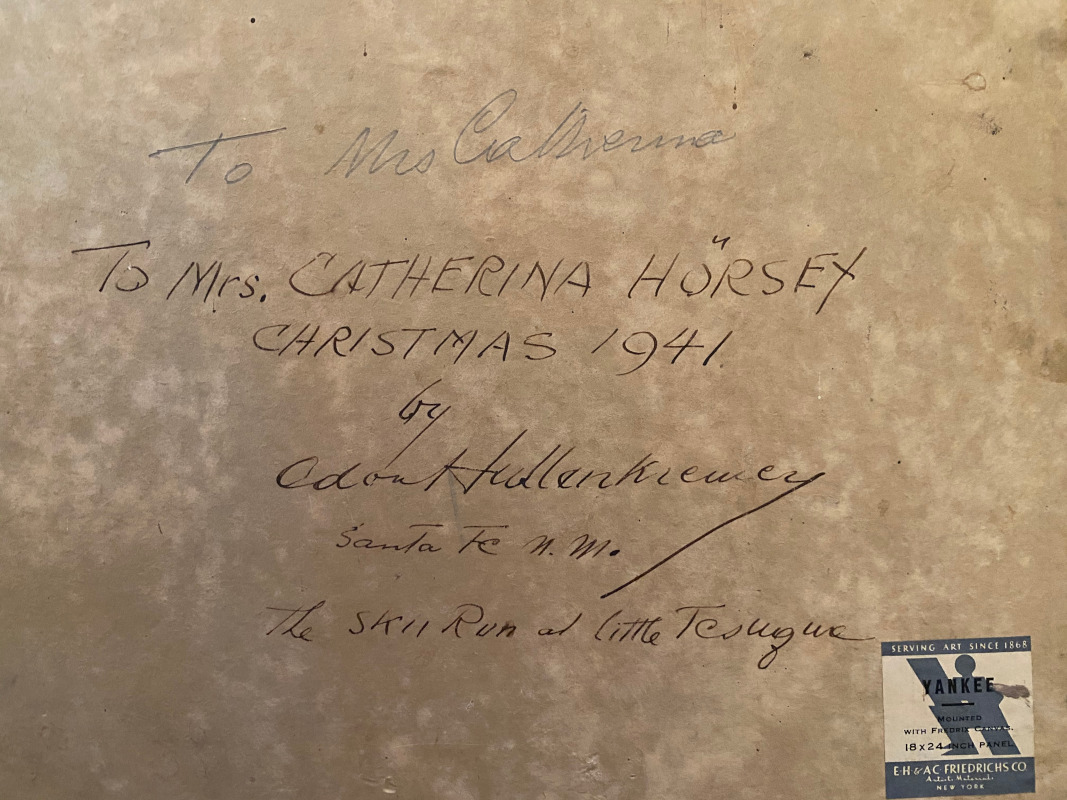 To Mrs Catherina
To Mrs. CATHERINA HÖRSEY
CHRISTMAS 1941.
by
Odon Hullenkremer
Santa Fe N.M.
The Skii Run at little Tesuque
SERVING ART SINCE 1868
YANKEE
MOUNTED
WITH FREDRIX CANVAS.
18x24 INCH PANEL
E·H & A·C FRIEDRICHS CO
Artists' Materials
NEW YORK